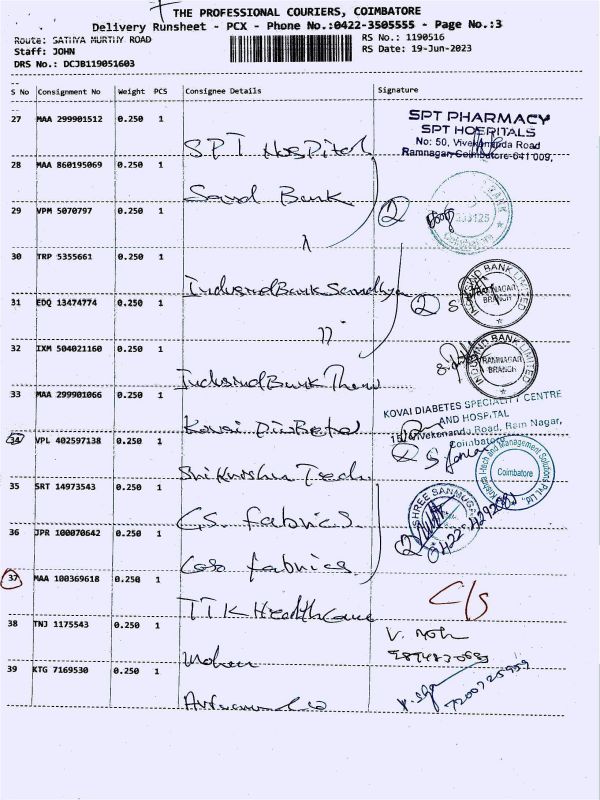 THE PROFESSIONAL COURIERS, COIMBATORE
Delivery Runsheet - PCX - Phone No.:0422-3505555 - Page No.:3
Route: SATHYA MURTHY ROAD
RS No.: 1190516
Staff: JOHN
RS Date: 19-Jun-2023
DRS No.: DCJB119051603
S No Consignment No Weight PCS Consignee Details Signature
27 MAA 299901512 0.250 1 SPT Hospital
SPT PHARMACY
SPT HOSPITALS
No: 50, Vivekananda Road
Ramnagar, Coimbatore-641 009,
28 MAA 860195069 0.250 1 Bank
29 VPM 5070797 0.250 1
2
BANK
30 TRP 5355661 0.250 1 IndusindBank
INDUSIND BANK LIMITED
RAMNAGAR
BRANCH
31 EDQ 13474774 0.250 1 ''
2
32 IXM 504021160 0.250 1 IndusindBank
INDUSIND BANK LIMITED
RAMNAGAR
BRANCH
33 MAA 299901066 0.250 1 Kovai Diabetes
KOVAI DIABETES SPECIALITY CENTRE
AND HOSPITAL
Vivekananda Road, Ram Nagar,
Coimbatore
34 VPL 402597138 0.250 1 Tech
Hi-tech and Management Solutions Pvt. Ltd
Coimbatore
35 SRT 14973543 0.250 1 G.S. fabrics
SHREE SANMUGA
36 JPR 100070642 0.250 1 fabrics
2
37 MAA 100369618 0.250 1 TTK HealthCare
C/S
38 TNJ 1175543 0.250 1 Mohan
39 KTG 7169530 0.250 1
7200725959